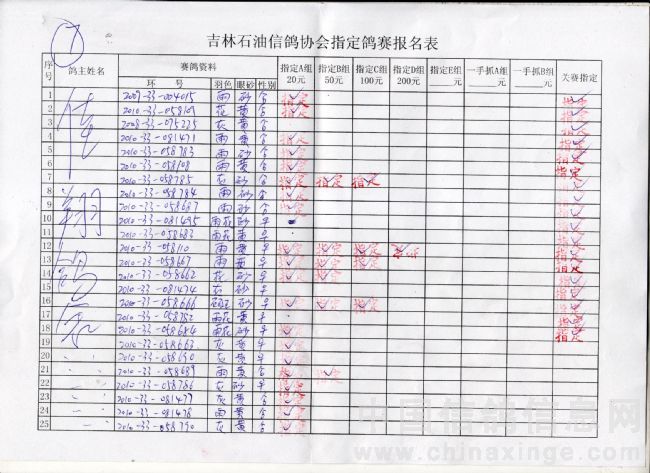 1
吉林石油信鸽协会指定鸽赛报名表
序号 鸽主姓名 赛鸽资料 指定A组20元 指定B组50元 指定C组100元 指定D组200元 指定E组___元 一手抓A组___元 一手抓B组___元 关赛指定
环 号 羽色 眼砂 性别
佳翔鸽舍
1 2009-33-004015 雨 砂 合 指定 指定
2 2010-33-058109 花 黄 合 指定 指定
3 2008-33-075225 灰 黄 合 指定
4 2010-33-081471 雨 黄 合 指定 指定
5 2010-33-058783 雨 砂 合 指定 指定
6 2010-33-058108 雨 黄 合 指定 指定
7 2010-33-058785 灰 砂 合 指定 指定 指定 指定
8 2010-33-058784 雨 砂 合 指定 指定
9 2010-33-058687 雨 砂 合 指定 指定
10 2010-33-081495 雨花 砂 早 指定
11 2010-33-058683 雨花 黄 早 指定
12 2010-33-058110 雨 黄 早 指定 指定 指定 指定 指定
13 2010-33-058667 雨 砂 早 指定 指定 指定 指定
14 2010-33-058662 花 砂 早 指定 指定 指定
15 2010-33-081474 灰 砂 早 指定
16 2010-33-058666 砂 早 指定 指定 指定 指定
17 2010-33-058752 雨花 黄 早 指定
18 2010-33-058684 雨花 砂 早 指定 指定
19 2010-33-058663 灰 黄 早 指定 指定
20 2010-33-058690 灰 黄 合 指定
21 2010-33-058689 雨 黄 合 指定 指定
22 2010-33-058786 灰 砂 合 指定
23 2010-33-081479 灰 黄 合 指定
24 2010-33-081478 雨 黄 合 指定
25 2010-33-058790 灰 黄 合 指定
中国信鸽信息网
www.chinaxinge.com